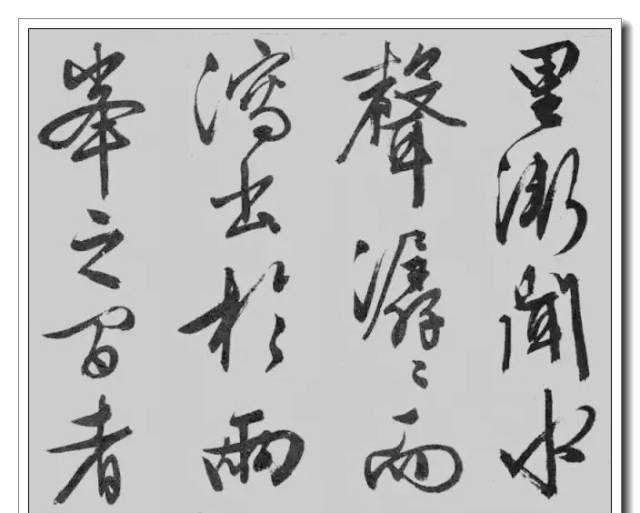 里漸聞水
聲潺〻而
瀉出於兩
峯之間者